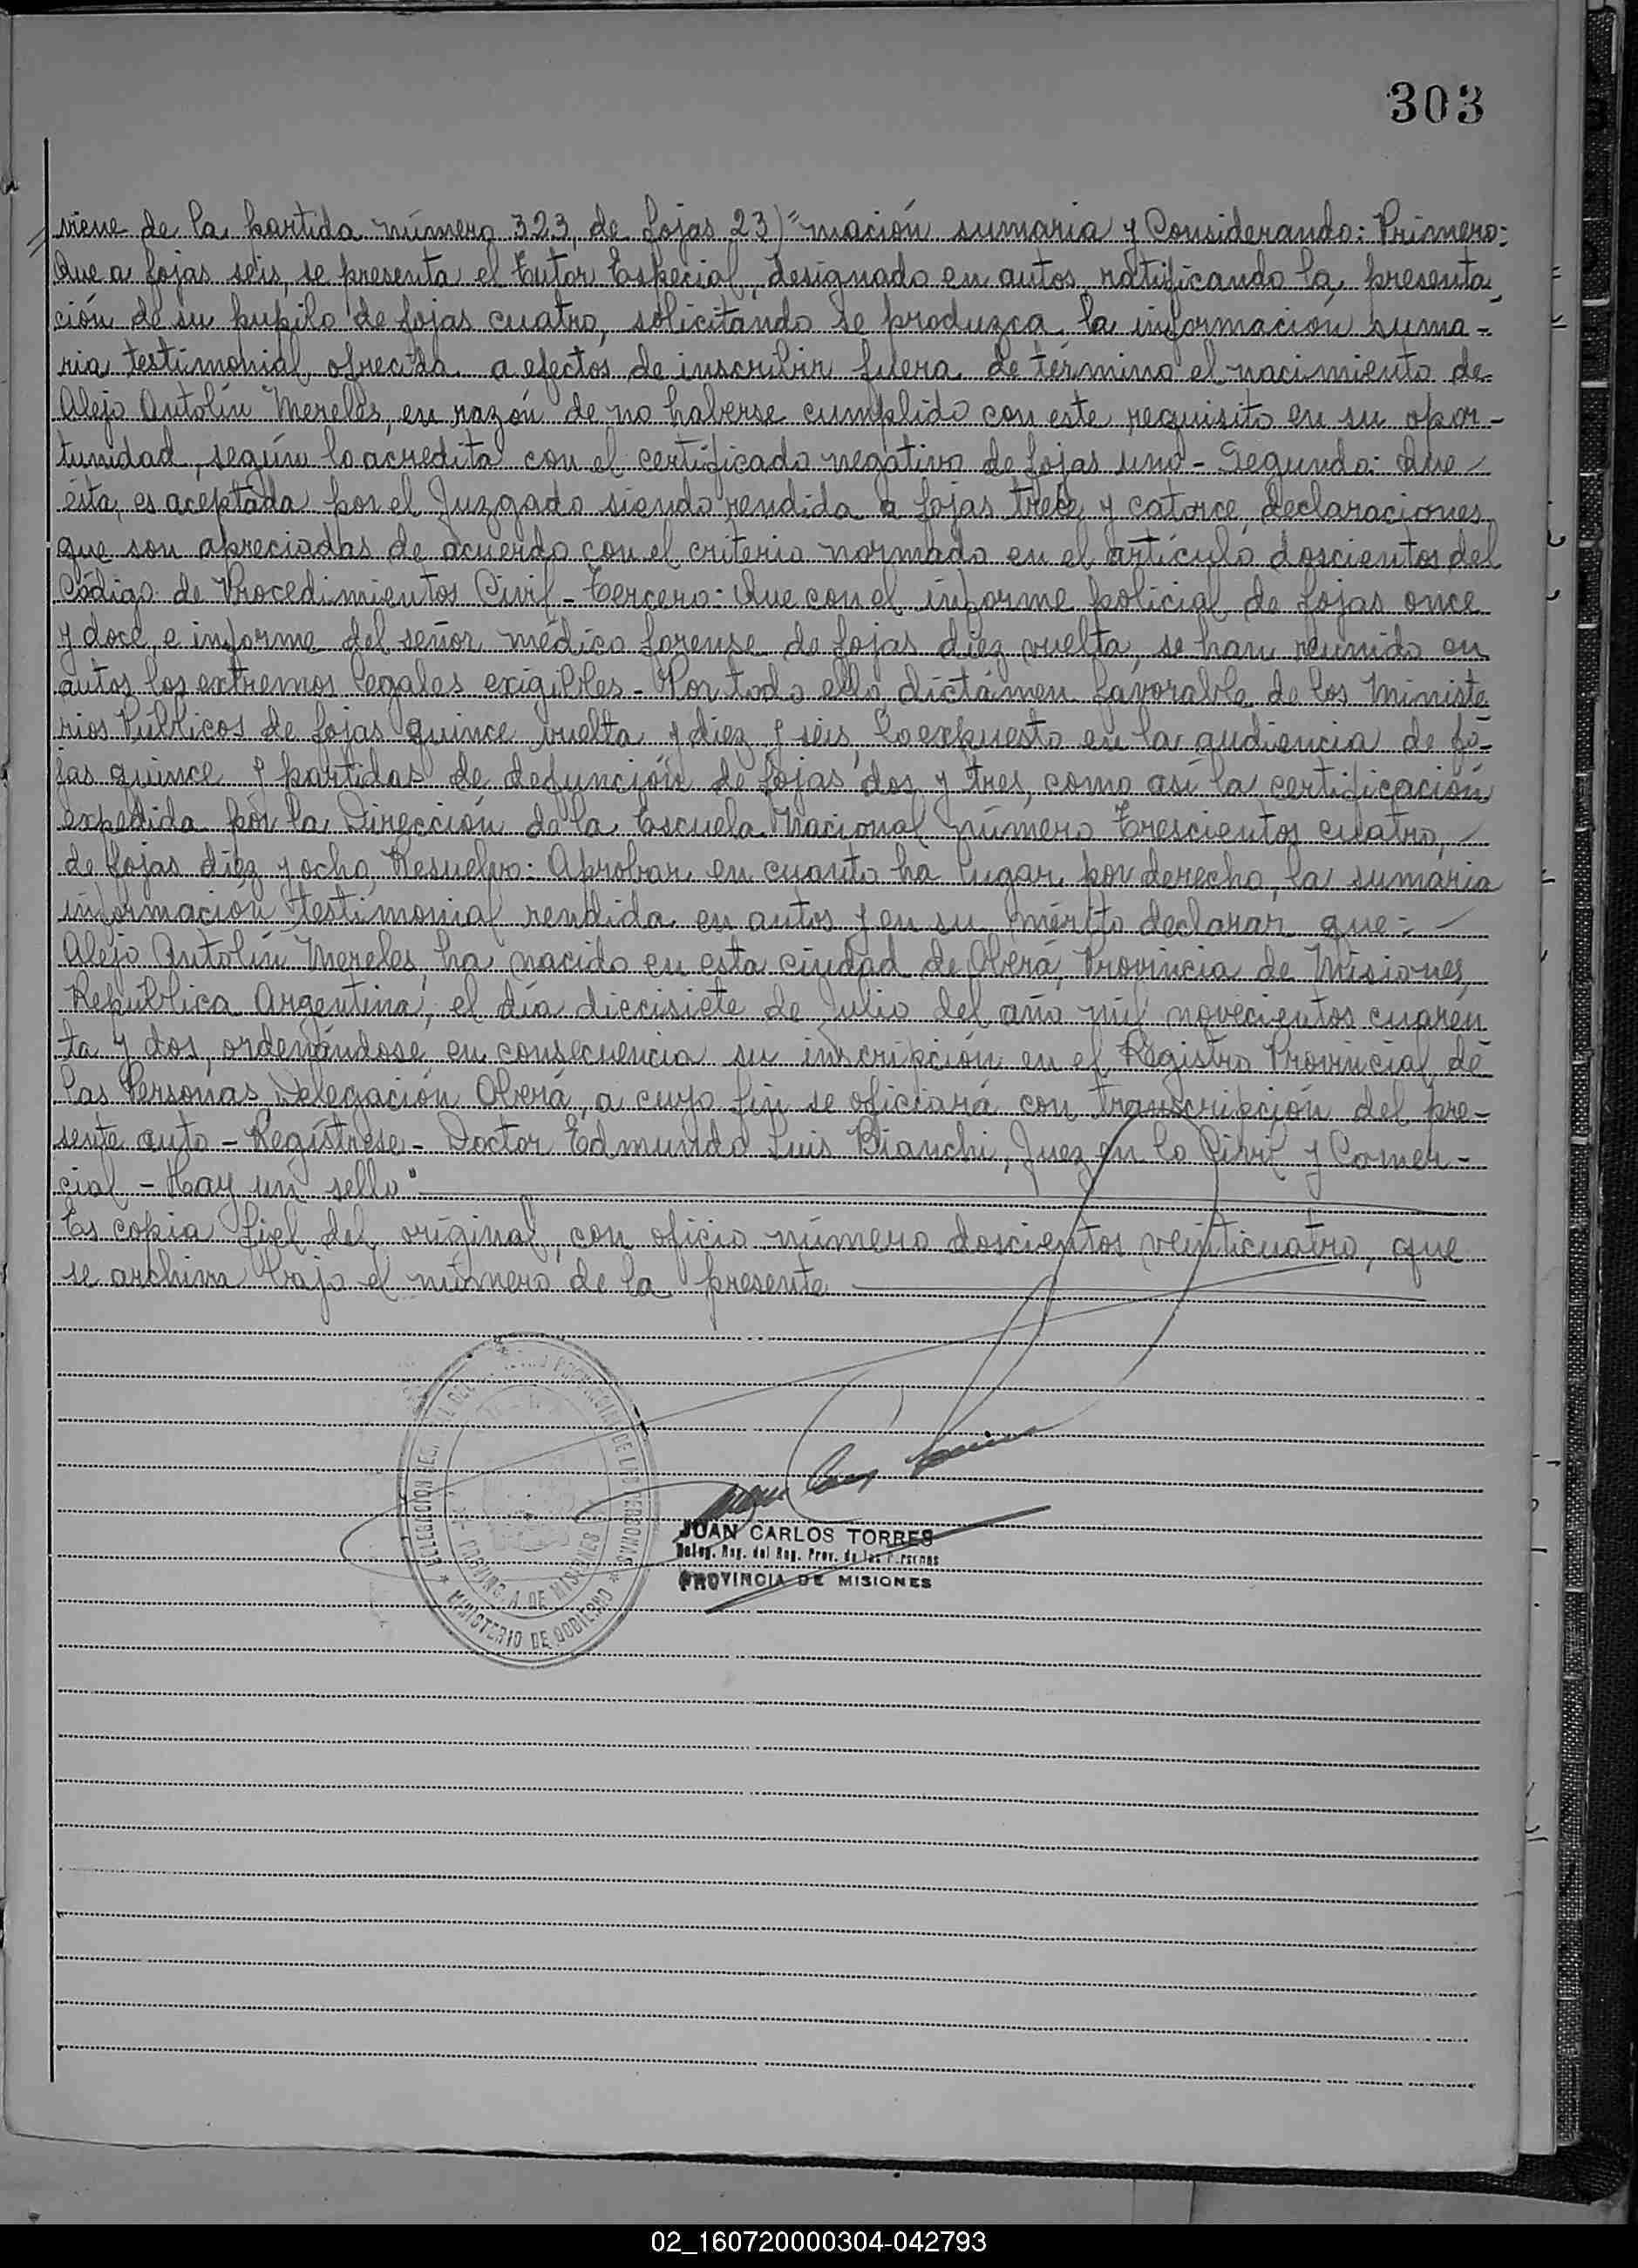 303
viene de la partida número 323, de fojas 23)="mación sumaria y Considerando: Primero:
Que a fojas seis, se presenta el Tutor Especial, designado en autos, ratificando la presenta
ción de su pupilo de fojas cuatro, solicitando se produzca la información suma-
ria testimonial ofrecida a efectos de inscribir fuera de término el nacimiento de
Alejo Antolín Mereles, en razón de no haberse cumplido con este requisito en su opor-
tunidad, según lo acredita con el certificado negativo de fojas uno - Segundo: Que
ésta, es aceptada por el Juzgado siendo rendida a fojas trece y catorce, declaraciones
que son apreciadas de acuerdo con el criterio normado en el artículo doscientos del
Código de Procedimientos Civil - Tercero: Que con el informe policial de fojas once
y doce, e informe del señor médico forense de fojas diez vuelta, se han reunido en
autos los extremos legales exigibles - Por todo ello dictámen favorable de los Ministe
rios Públicos de fojas quince vuelta y diez y seis, lo expuesto en la audiencia de fo-
jas quince y partidas de defunción de fojas dos y tres, como así la certificación
expedida por la Dirección de la Escuela Nacional número Trescientos cuatro,
de fojas diez y ocho, Resuelvo: Aprobar en cuanto ha lugar por derecho, la sumaria
información testimonial rendida en autos y en su mérito declarar que: -
Alejo Antolín Mereles, ha nacido en esta ciudad de Oberá, Provincia de Misiones,
República Argentina, el día diecisiete de Julio del año mil novecientos cuaren
ta y dos, ordenándose en consecuencia su inscripción en el Registro Provincial de
las Personas Delegación Oberá, a cuyo fin se oficiará con transcripción del pre-
sente auto - Regístrese - Doctor Edmundo Luis Bianchi, Juez en lo Civil y Comer-
cial - Hay un sello"
Es copia fiel del original, con oficio número doscientos veinticuatro, que
se archiva bajo el número de la presente
DE LAS PERSONAS
PROVINCIA DE MISIONES
MINISTERIO DE GOBIERNO
JUAN CARLOS TORRES
Deleg. Reg. del Reg. Prov. de las Personas
PROVINCIA DE MISIONES
02_160720000304-042793